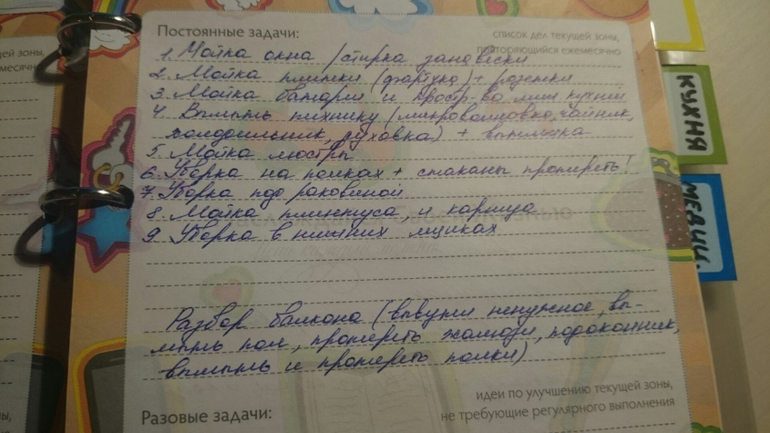 Постоянные задачи:
список дел текущей зоны,
повторяющийся ежемесячно
1. Мойка окна /стирка занавески
2. Мойка плитки (фартука) + розетки
3. Мойка батареи и простр-ва
4. Вымыть технику (микроволновка, чайник,
холодильник, духовка) + вытяжка
5. Мойка люстры
6. Уборка на полках + стаканы протереть!
7. Уборка под раковиной
8. Мойка плинтуса, и карниза
9. Уборка в нижних ящиках
Разбор балкона (ненужное, вы-
мыть пол, протереть жалюзи, подоконник,
вымыть и протереть полки)
идеи по улучшению текущей зоны,
не требующие регулярного выполнения
Разовые задачи:
КУХНЯ